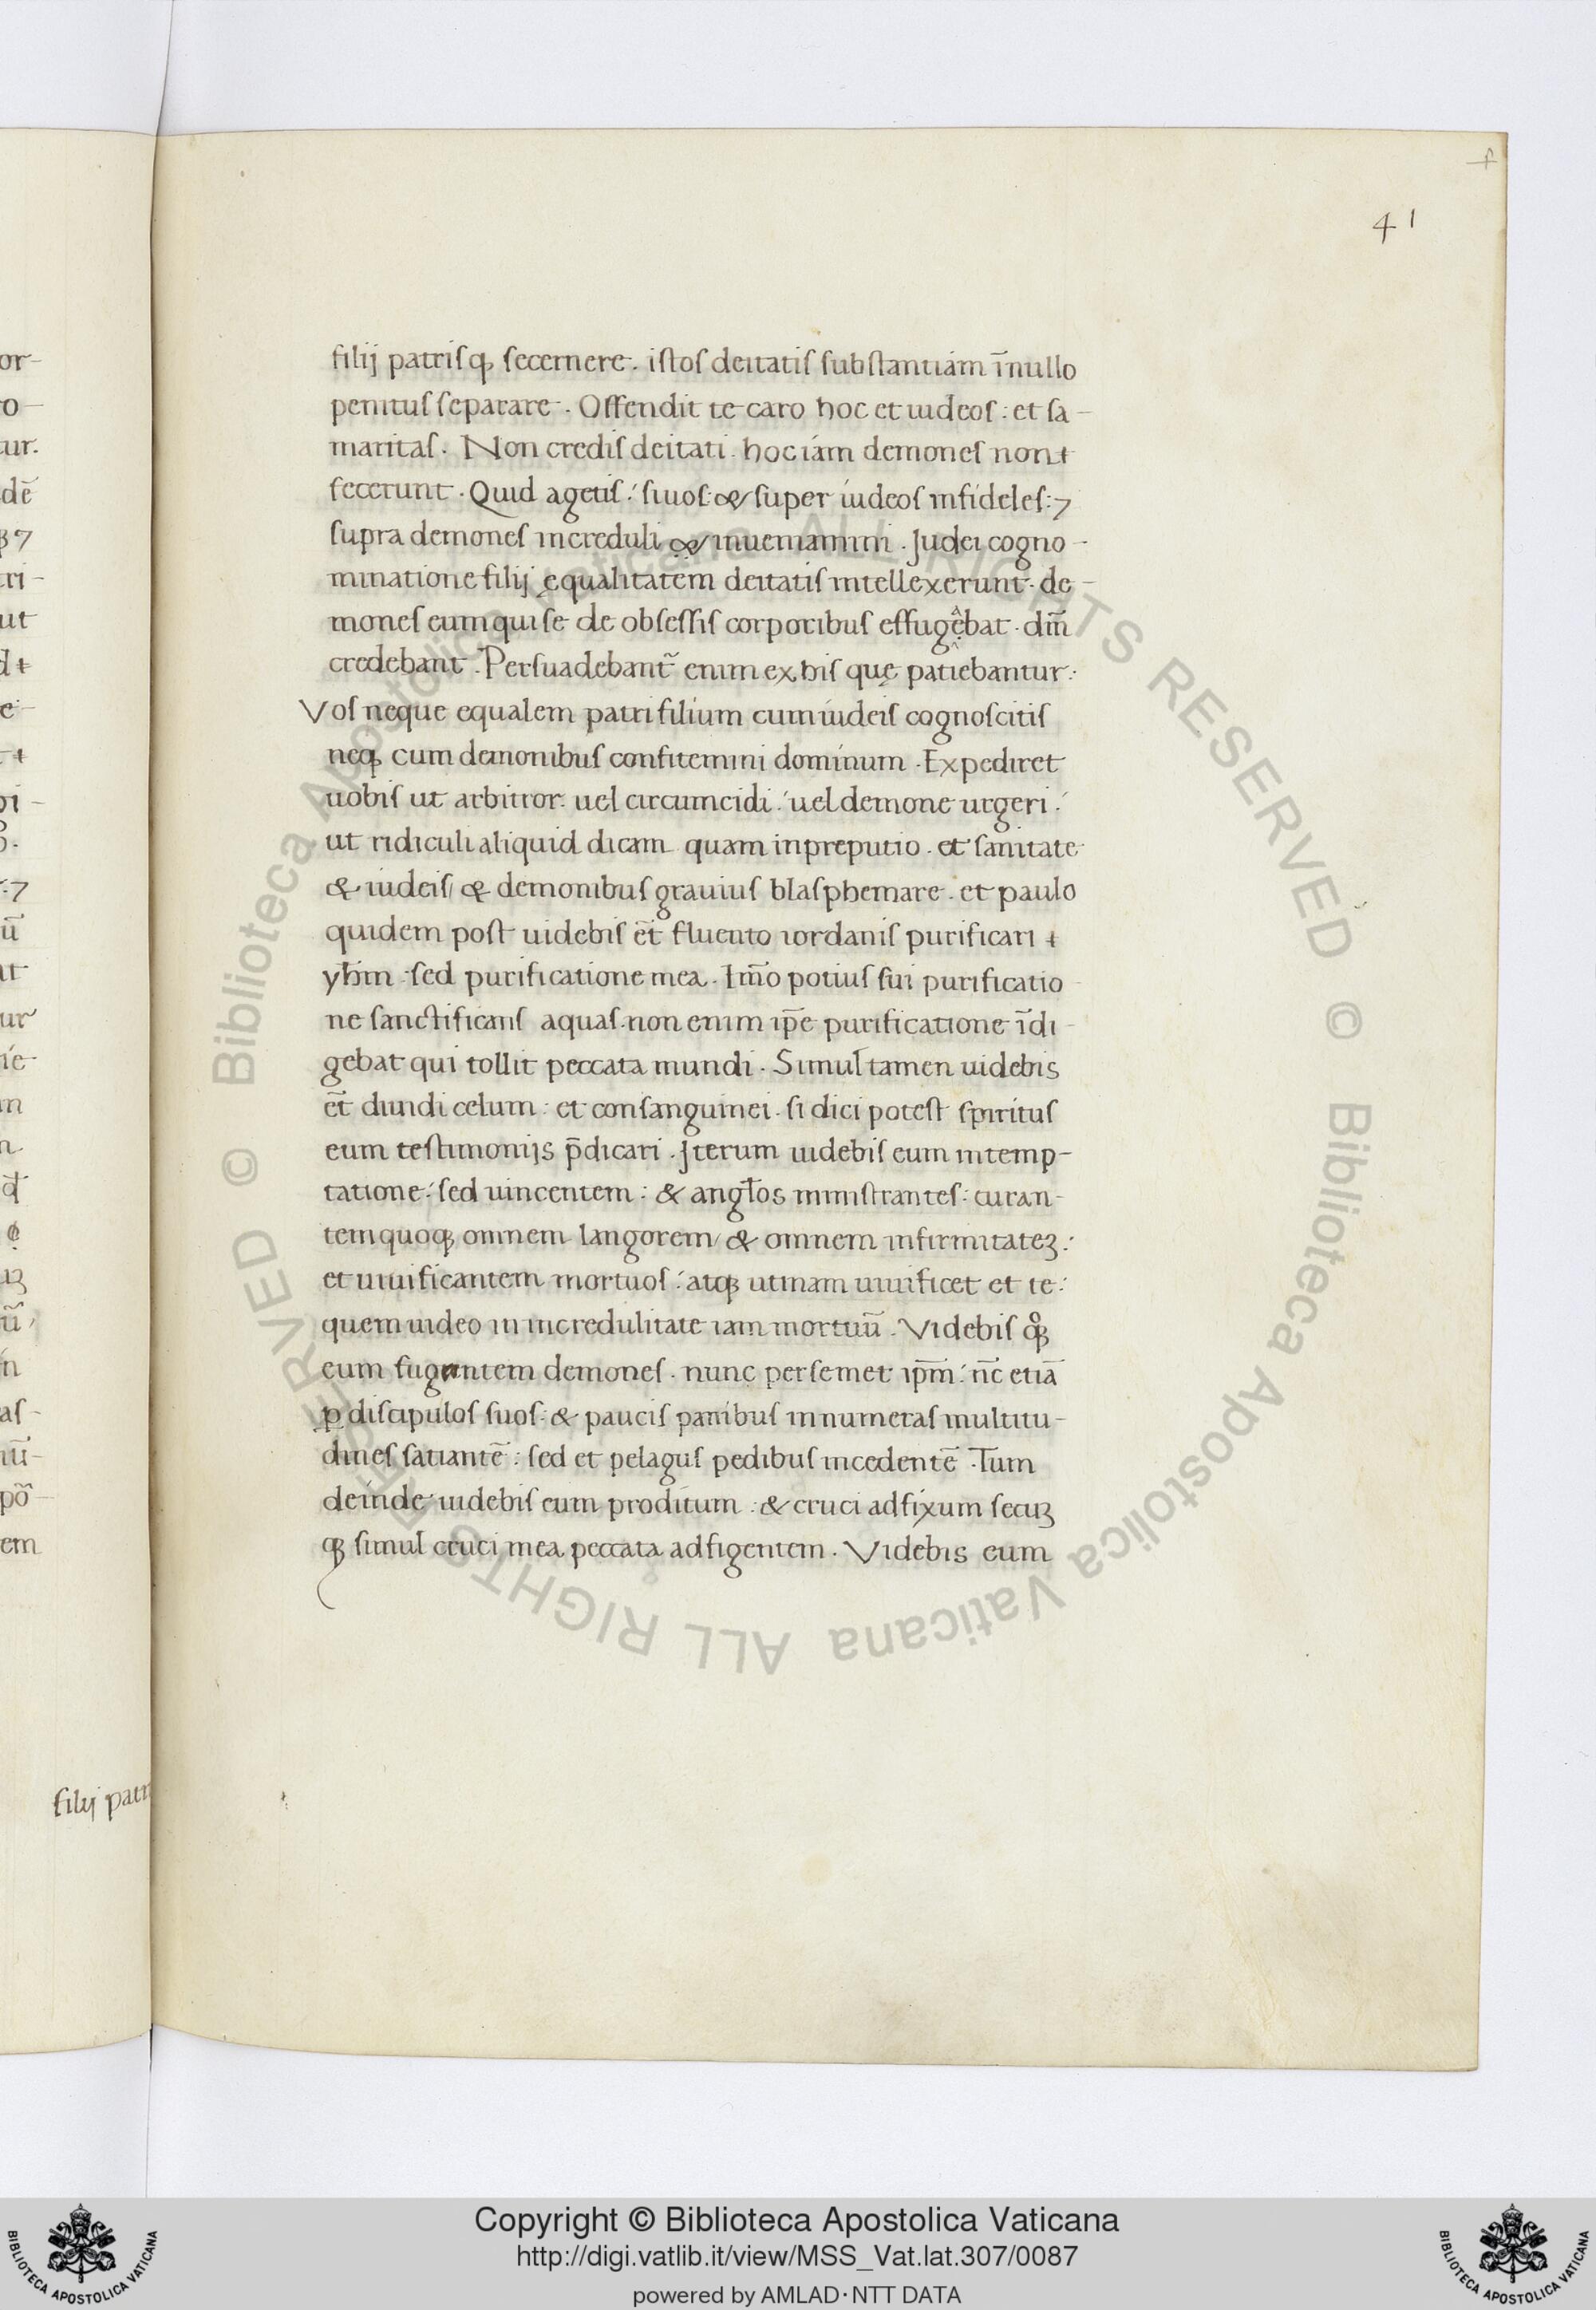 41
filij patrisq; secernere. istos deitatis substantiam īnullo
penitus separare. Offendit te caro hoc et iudeos: et sa-
maritas. Non credis deitati. hoc iam demones non
fecerunt. Quid agetis: siuos: & super iudeos infideles: 7
supra demones increduli & inueniamini. Judei cogno-
minatione filij ęqualitatem deitatis intellexerunt. de-
mones eum qui se de obsessis corporibus effugębat. dm̄
credebant. Persuadebant᷑ enim ex his quę patiebantur:
Vos neque equalem patri filium cum iudeis cognoscitis
neq; cum demonibus confitemini dominum. Expediret
uobis ut arbitror. uel circumcidi: uel demone urgeri:
ut ridiculi aliquid dicam quam inpreputio. et sanitate
& iudeis/ & demonibus grauius blasphemare. et paulo
quidem post uidebis et̄ fluento iordanis purificari
yħm. sed purificatione mea. Im̄o potius sui purificatio
ne sanctificans aquas. non enim ip̄e purificatione īdi-
gebat qui tollit peccata mundi. Simul tamen uidebis
et̄ diuidi celum: et consanguinei. si dici potest spiritus
eum testimonijs p̄dicari. Iterum uidebis eum intemp-
tatione: sed uincentem: & angl̄os ministrantes: curan-
tem quoq; omnem langorem/ & omnem infirmitatēʒ:
et uiuificantem mortuos: atq; utinam uiuificet et te:
quem uideo in incredulitate iam mortuū. Videbis q̊;
eum fugantem demones. nunc per semet ip̄m: nc̄ etiā
ꝑ discipulos suos: & paucis panibus innumeras multitu-
dines satiantē: sed et pelagus pedibus incedentē. Tum
deinde uidebis eum proditum: & cruci adfixum secuʒ
q; simul cruci mea peccata adfigentem. Videbis eum
filij patri
Copyright © Biblioteca Apostolica Vaticana
http://digi.vatlib.it/view/MSS_Vat.lat.307/0087
powered by AMLAD·NTT DATA